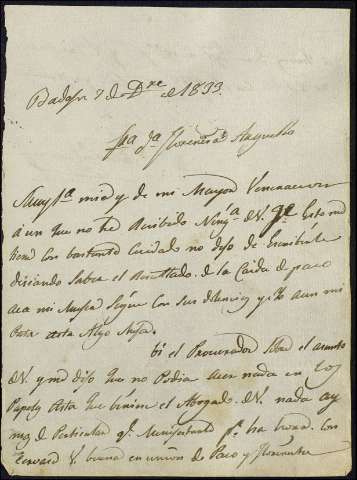 Badajoz 7 de Dre de 1833.
Sra Da Florencia Arguello
Muy Sra mia y de mi Mayor Veneracion
aun que no he Recibido Ning.a de V. que esto me
tiene con bastante Cuidado no dejo de Escribirle
diciando Saber el Resultado de la Caida de paco
aca mi Sigue con sus dilencias y Yo aun mi
Rosa asta Algo
bi el Procurador sobre el asunto
de V. y me dijo que no Podia acer nada en los
Papeles Asta que biniese el Abogado de V. nada ay
mas de Particular qe Manifestarle pr ha hora. Con
Serviard V. buena en union de Paco y Florencita